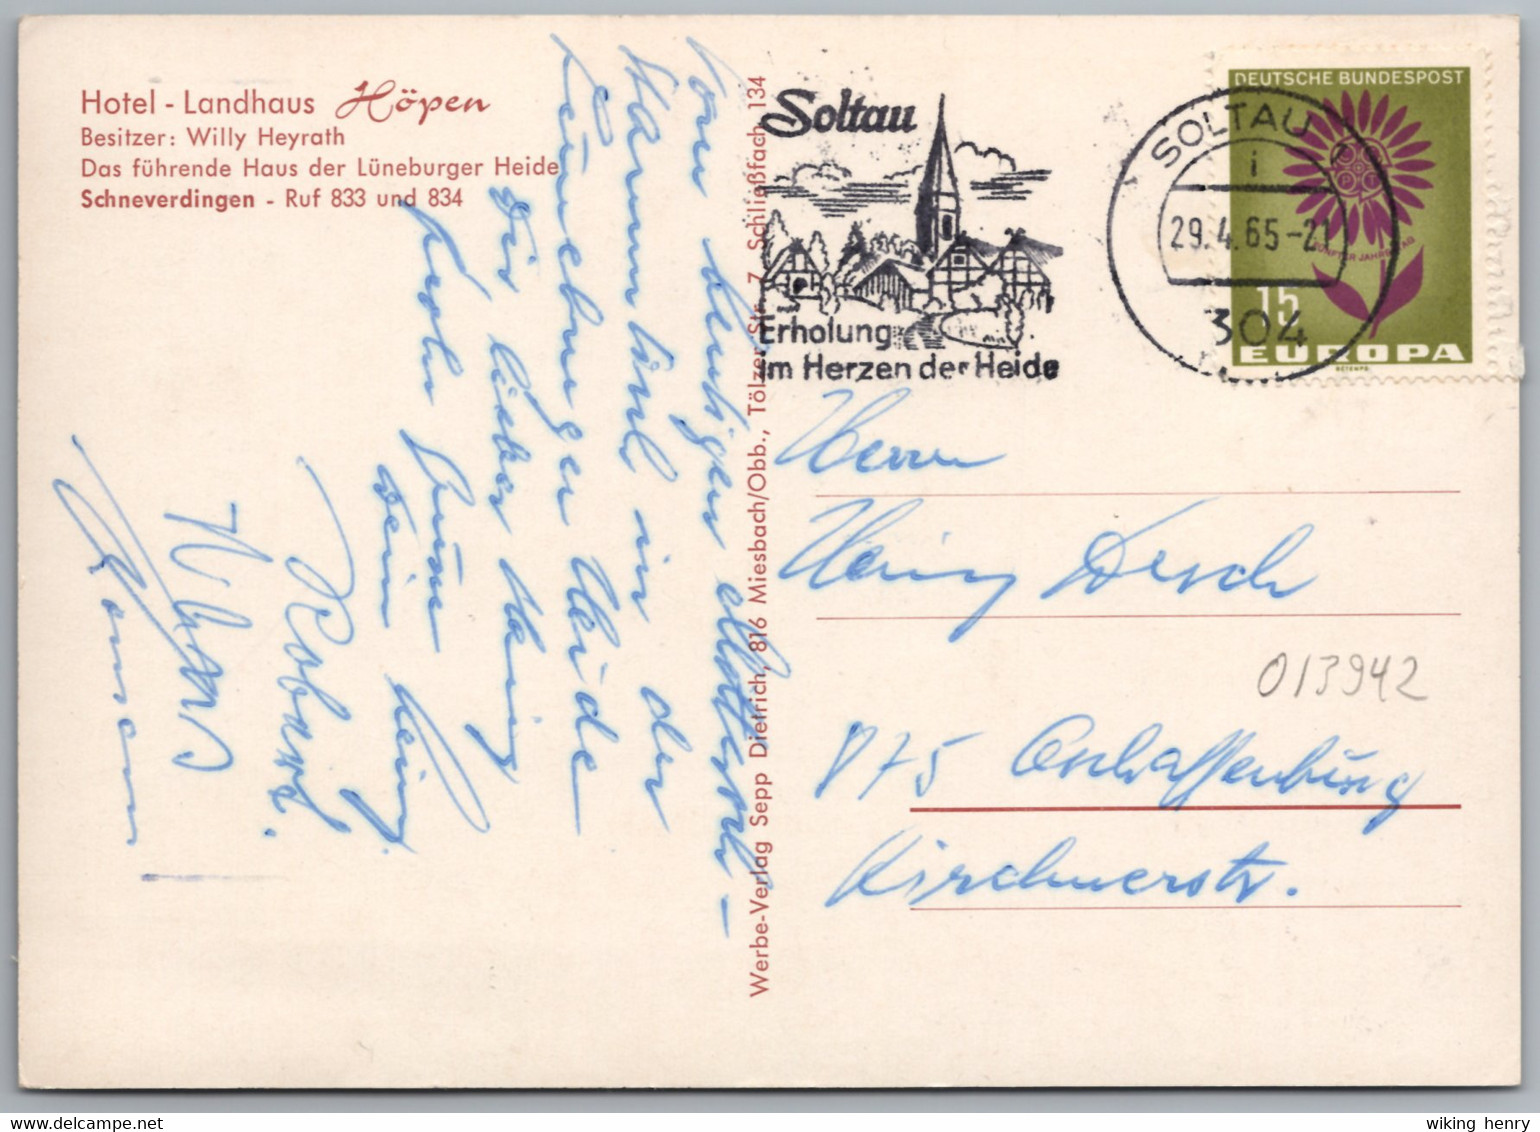 Hotel - Landhaus Höpen
Besitzer: Willy Heyrath
Das führende Haus der Lüneburger Heide
Schneverdingen - Ruf 833 und 834
Vom heutigen
Stammtisch in der
Lüneburger Heide
Dir lieber Heinz
frohe Grüße
Dein Heinz
Werbe-Verlag Sepp Dietrich, 816 Miesbach/Obb., Tölzer Str. 7 Schließfach 134
Soltau
Erholung
im Herzen der Heide
SOLTAU
i
29.4.65-21
304
DEUTSCHE BUNDESPOST
15
EUROPA
Herrn
Heinz Desch
013942
875 Aschaffenburg
Kirchnerstr.
delcampe.net
wiking henry